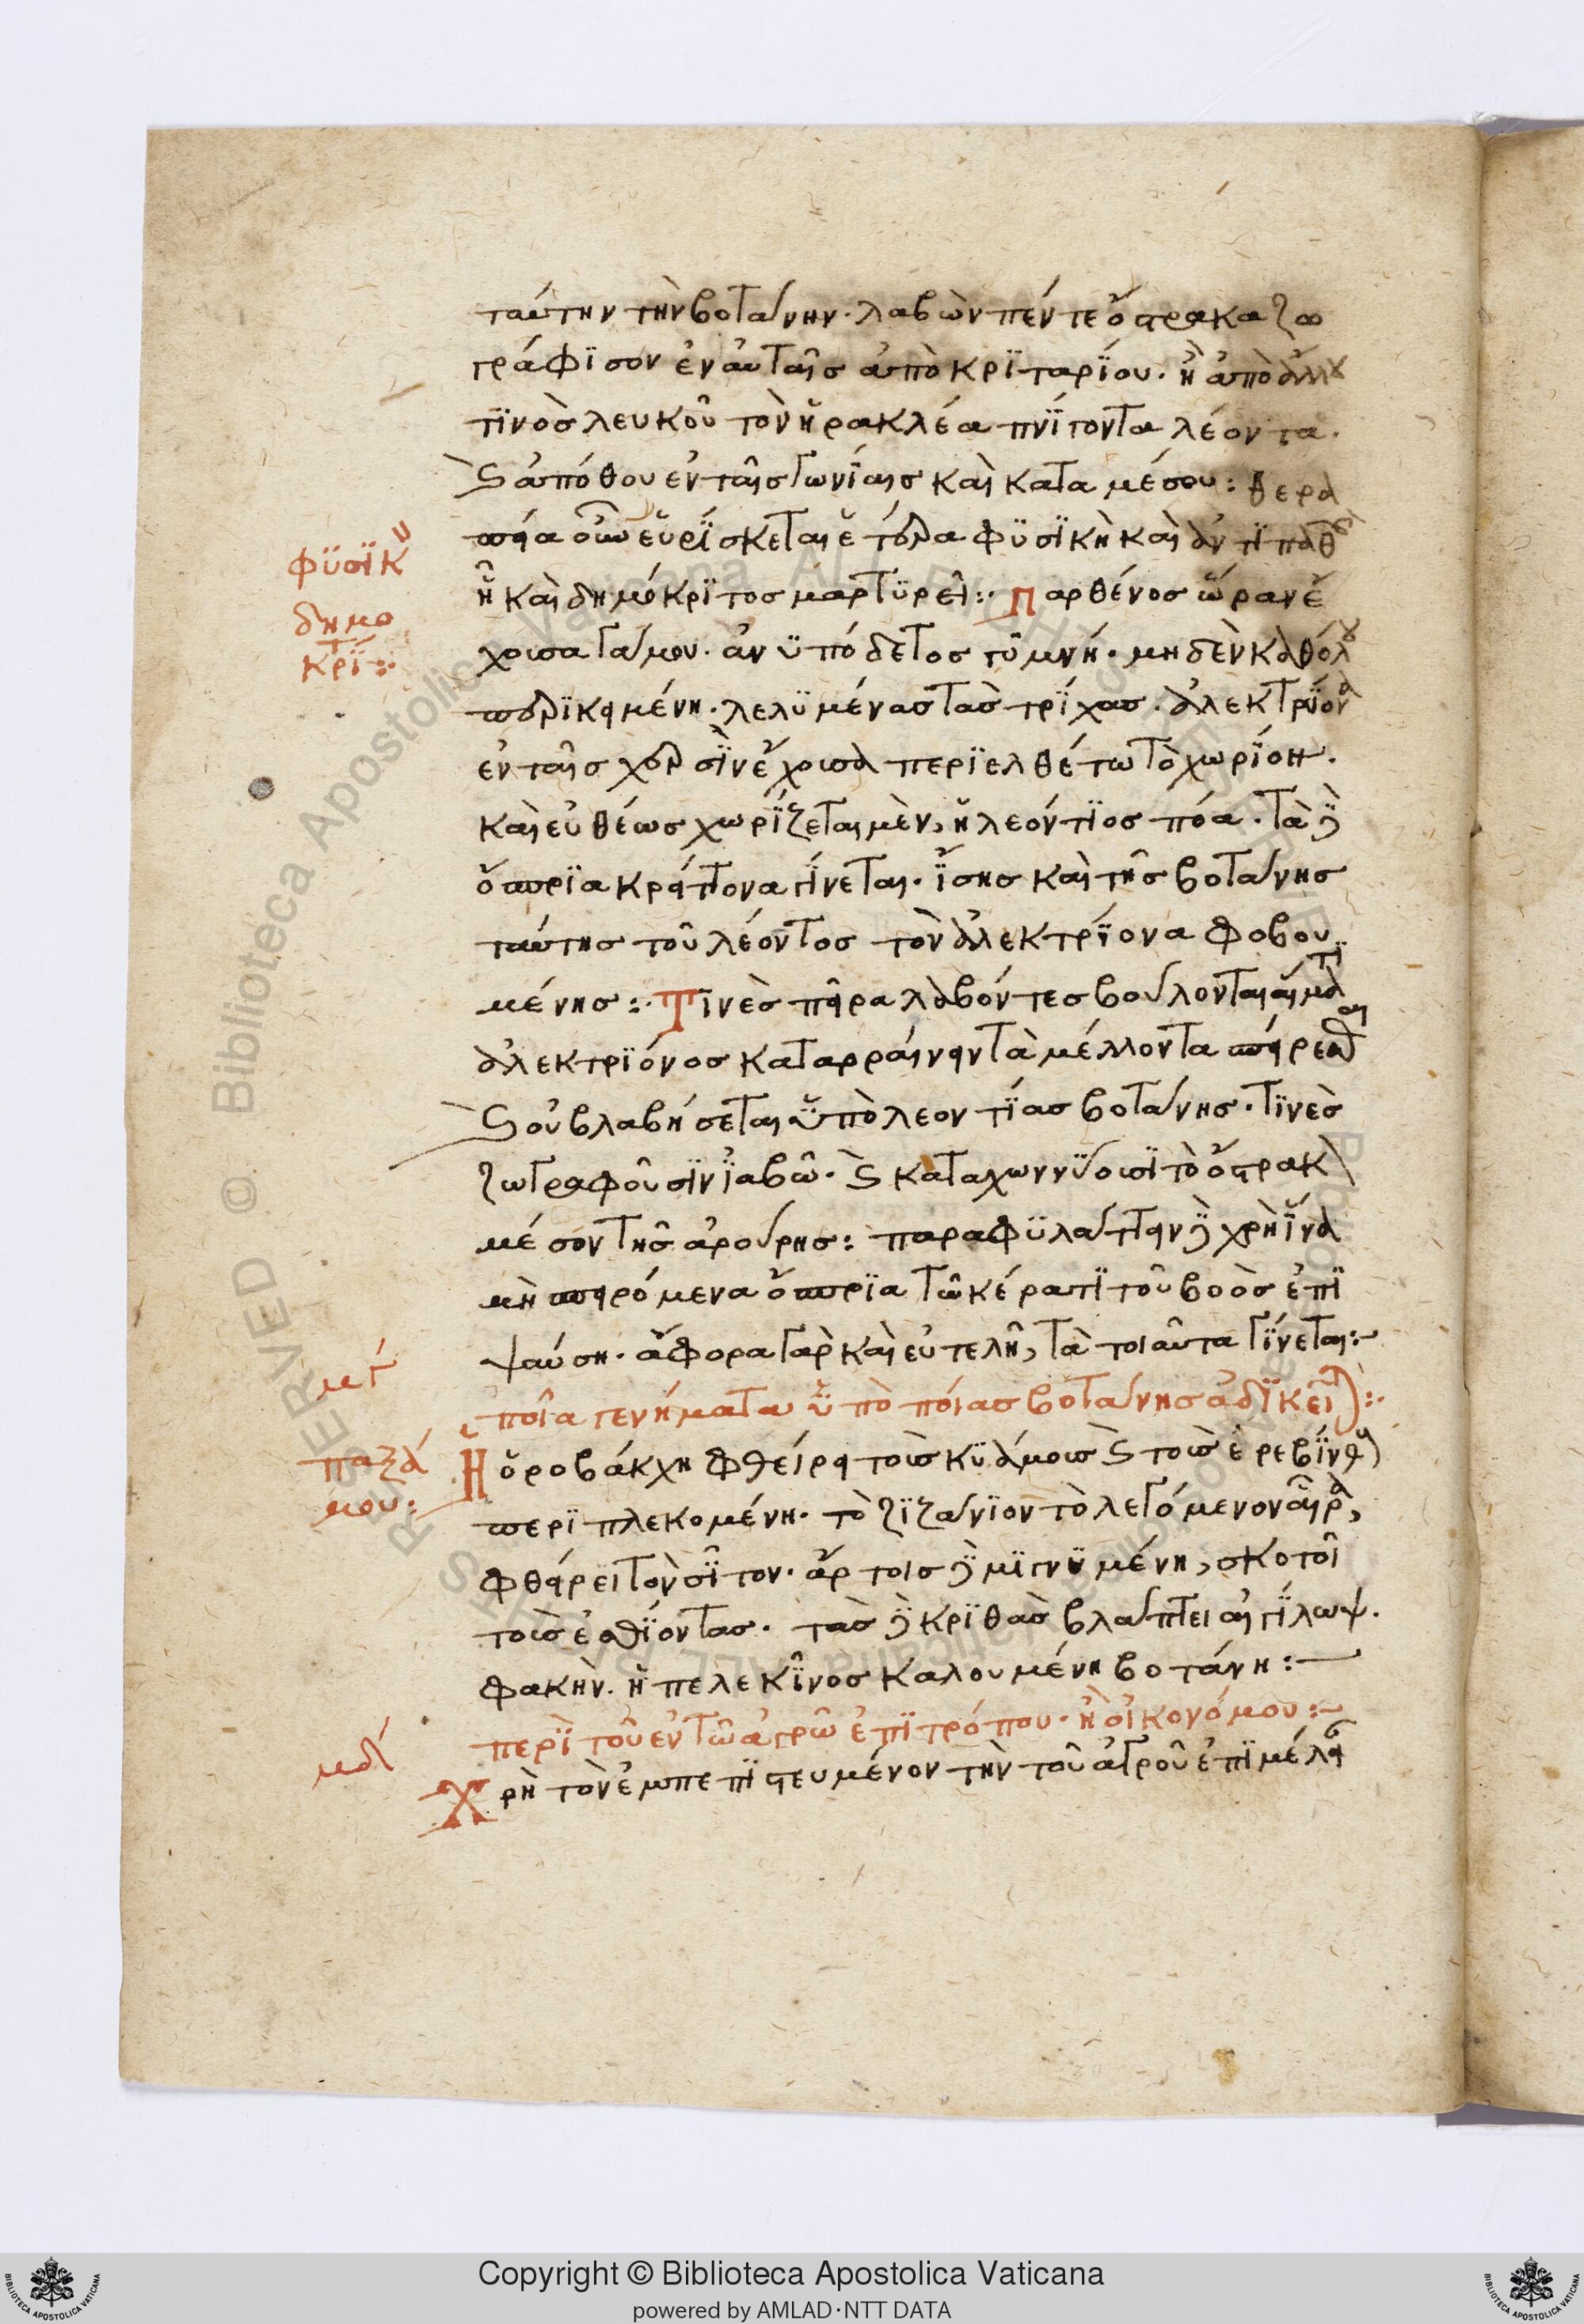 ταύτην τὴν βοτάνην· λαβὼν πέντε ὄστρακα ζω
γράφϊσον ἐν αὐταῖς ἀπὸ κρϊταρΐου· ἢ ἀπὸ ἄλλου
τϊνὸς λευκοῦ τὸν ἡρακλέα πνΐγοντα λέοντα·
ϛ ἀπόθου ἐν ταῖς γωνΐαις καὶ κατα μέσου: θερα
πεία οὖν εὑρΐσκεται ἑτέρα φϋσϊκὴ καὶ ἀντϊπαθὴς
ἧ καὶ δημόκρϊτος μαρτϋρεῖ:· Παρθένος ὥραν ἔ
χουσα γάμου· ἀνϋπόδετος γυμνή· μηδὲν καθόλου
περϊκειμένη· λελϋμένας τὰς τρΐχας· ἀλεκτρϊόνα
ἐν ταῖς χερσῒν ἔχουσα περϊελθέτω τὸ χωρΐον·
καὶ εὐθέως χωρΐζεται μὲν, ἡ λεόντϊος πόα· τὰ δὲ
ὄσπρϊα κρείττονα γΐνεται· ἴσης καὶ τῆς βοτάνης
ταύτης τοῦ λέοντος τὸν ἀλεκτρΐονα φοβου
μένης:· Τϊνὲς πεῖρα λαβόντες βούλονται αἵματϊ
ἀλεκτρϊόνος καταρραίνειν τὰ μέλλοντα σπείρεσθαι
ϛ οὐ βλαβήσεται ὑπὸ λεοντΐας βοτάνης· τϊνὲς
ζωγραφοῦσϊν ϊαβῶ· ϛ καταχωννΰουσϊ τὸ ὄστρακον
μέσον τῆς ἀρούρης: παραφϋλάττειν δὲ χρὴ ἵνα
μὴ σπειρόμενα ὄσπρϊα τῶ κέρατϊ τοῦ βοὸς ἐπϊ
ψαύση· ἄφορα γὰρ καὶ εὐτελῆ, τὰ τοιαῦτα γΐνεται:
ποῖα γενήματα ὑπὸ ποίας βοτάνης ἀδϊκεῖται:·
Ἡ ὀροβάκχη φθείρει τοὺς κϋάμους ϛ τοὺς ἐρεβΐνθους
περϊπλεκομένη· τὸ ζϊζάνϊον τὸ λεγόμενον αἶρα,
φθείρει τὸν σῖτον· ἄρτοις δὲ μϊγνϋμένη, σκοτοῖ
τοὺς ἐσθΐοντας· τὰς δὲ κρϊθὰς βλάπτει αἰγΐλωψ·
φακὴν· ἡ πελεκῖνος καλουμένη βοτάνη:
περῒ τοῦ ἐν τῶ ἀγρῶ ἐπϊτρόπου· ἢ οἰκονόμου:
Χρὴ τὸν ἐμπεπϊστευμένον τὴν τοῦ ἀγροῦ ἐπϊμέλειαν
φϋσϊκὸν
δημο
κρΐτ:·
μγ
παξά
μου:
μδ
Copyright © Biblioteca Apostolica Vaticana
powered by AMLAD·NTT DATA